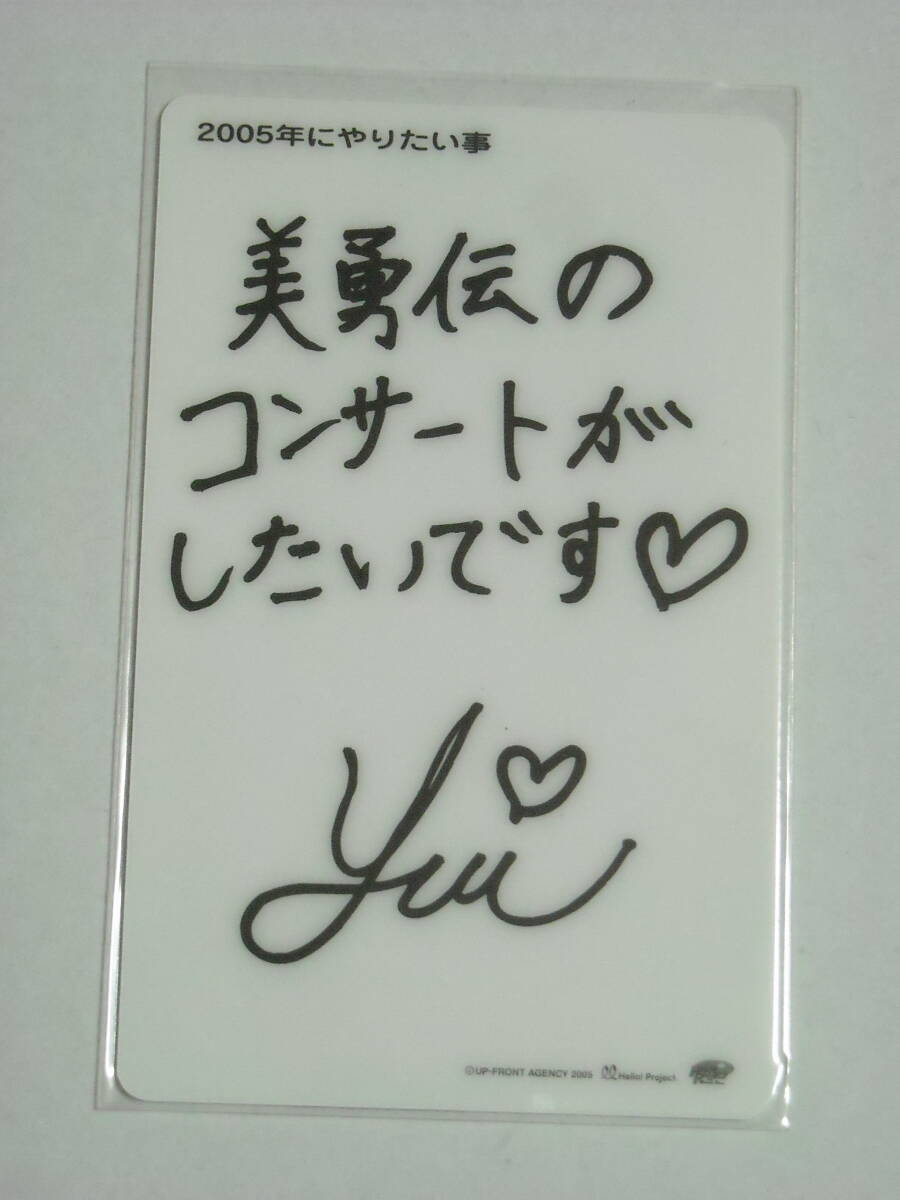 2005年にやりたい事
美勇伝の
コンサートが
したいです♡
Yui♡
©UP-FRONT AGENCY 2005 Hello! Project